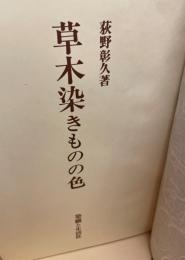 荻野彰久著
草木染きものの色